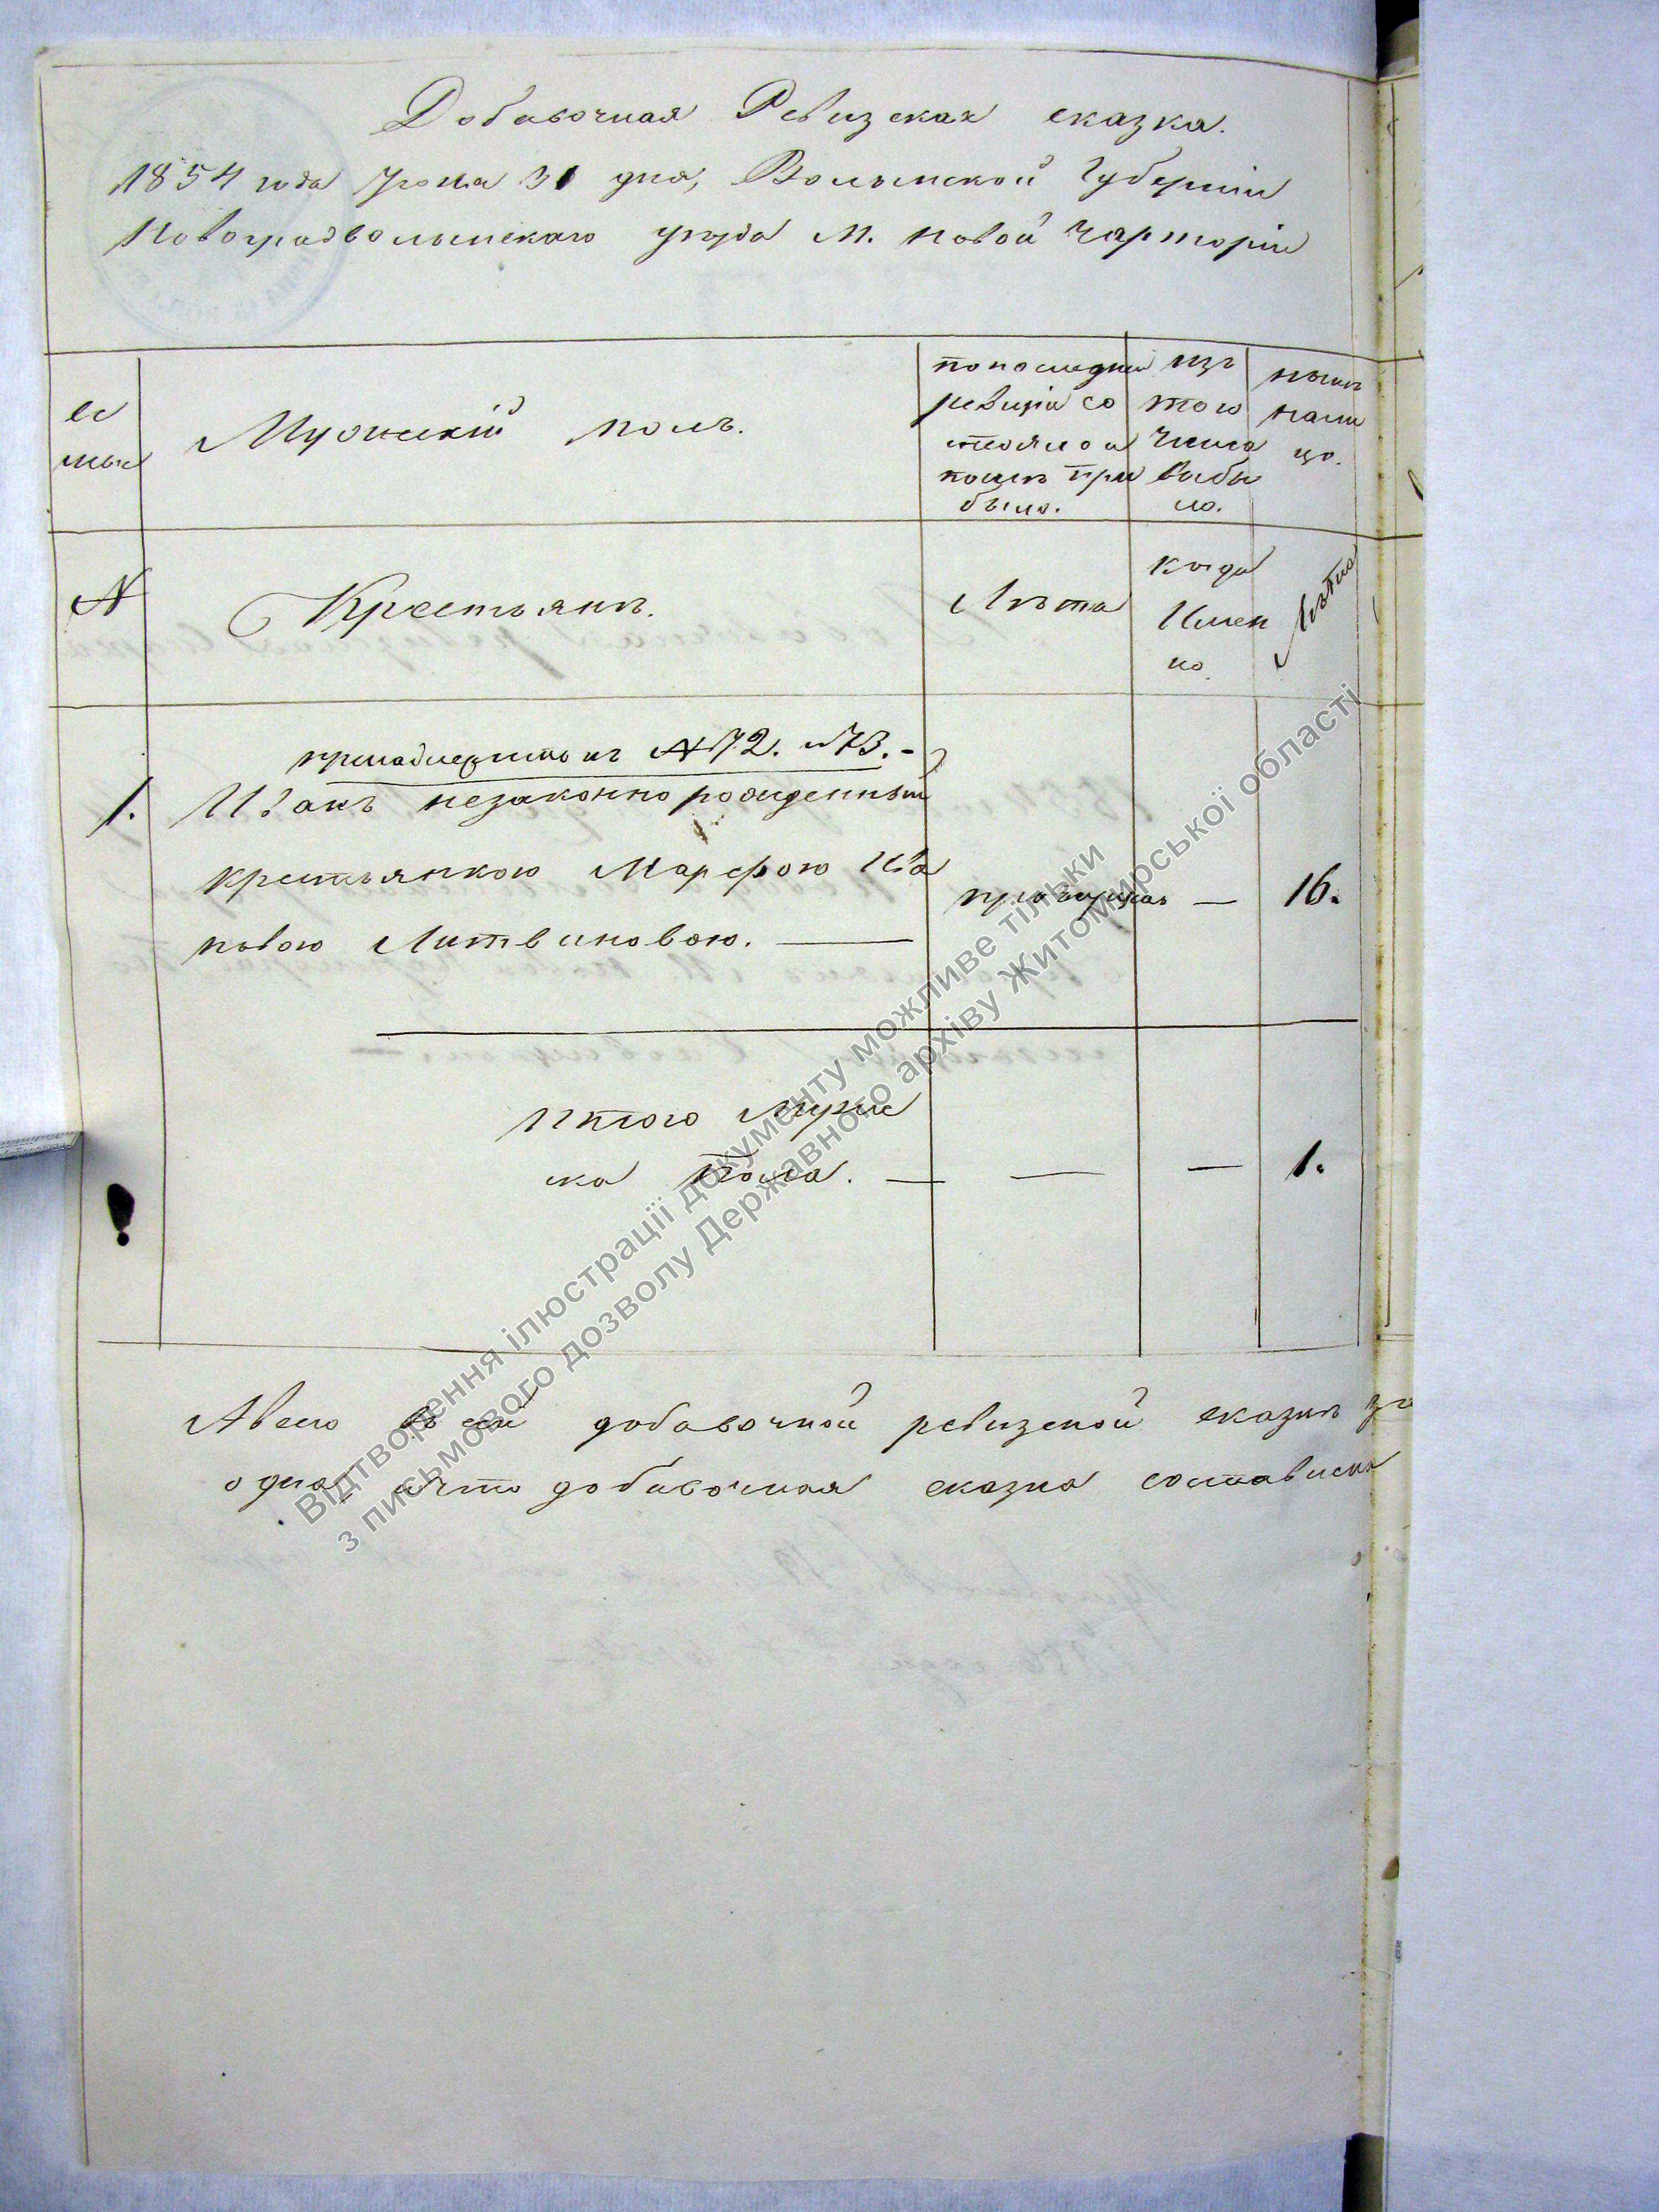 Добавочная Ревизская сказка.
1854 года Іюня 30 дня, Волынской Губерніи
Новоградволынскаго уезда М. Новой Чарторіи
се
мьи
Мужскій полъ.
по последней
ревизіи со
стояло и
после при
было.
изъ
того
числа
выбы
ло.
ныне
нали
цо.
№
Крестьяне.
Лѣта
когда
Имен
но.
Лѣта
принадлежитъ къ № 72. и 73. -
1. Иванъ незаконно рожденный
крестьянкою Марфою Ива
новою Литвиновою. —
пропущенъ — 16.
Итого Мужс
ка Пола. — — — 1.
А всего в сей добавочной ревизской сказке
одна, что добавочная сказка составлена
Відтворення ілюстрації документу можливе тільки
з письмового дозволу Державного архіву Житомирської області